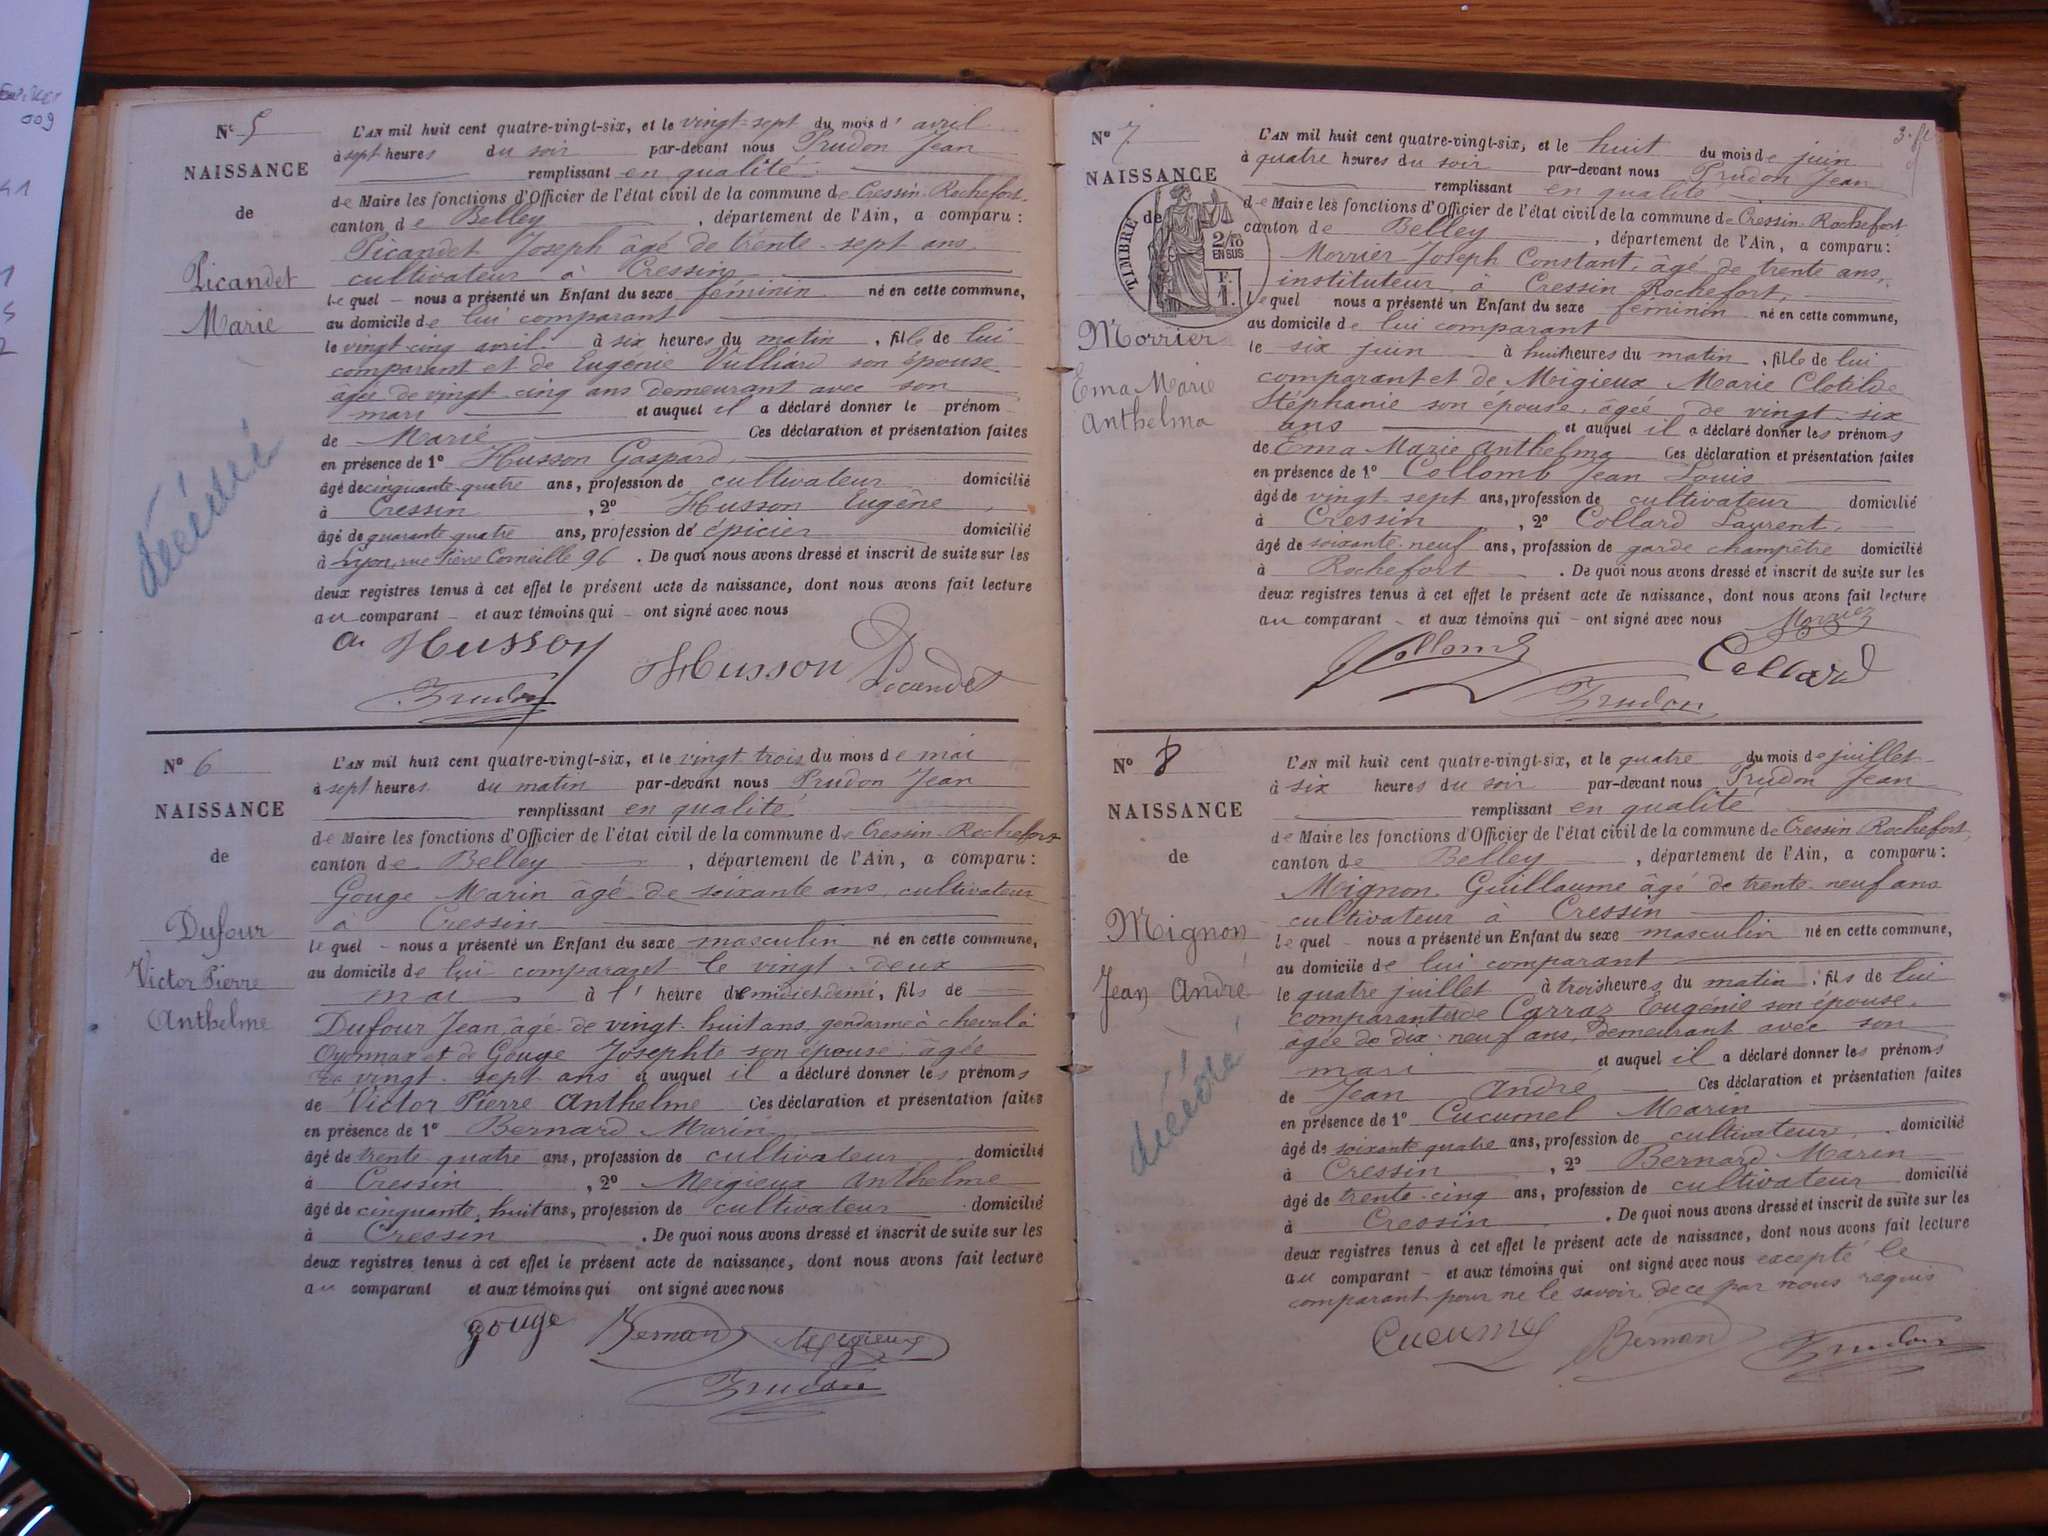 Nº 5
NAISSANCE
de
Picandet
Marie
décédée
L'AN mil huit cent quatre-vingt-six, et le vingt-sept du mois d'avril
à sept heures du soir par-devant nous Prudon Jean
remplissant en qualité
de Maire les fonctions d'Officier de l'état civil de la commune de Cressin-Rochefort
canton de Belley, département de l'Ain, a comparu :
Picandet Joseph âgé de trente-sept ans
cultivateur à Cressin
lequel nous a présenté un Enfant du sexe féminin né en cette commune,
au domicile de lui comparant
le vingt-cinq avril à six heures du matin, fille de lui
comparant et de Eugénie Vulliard son épouse
âgée de vingt-cinq ans demeurant avec son
mari et auquel il a déclaré donner le prénom
de Marie Ces déclaration et présentation faites
en présence de 1º Husson Gaspard
âgé de cinquante-quatre ans, profession de cultivateur domicilié
à Cressin, 2º Husson Eugène,
âgé de quarante quatre ans, profession de épicier domicilié
à Lyon, rue Pierre Corneille 96. De quoi nous avons dressé et inscrit de suite sur les
deux registres tenus à cet effet le présent acte de naissance, dont nous avons fait lecture
au comparant et aux témoins qui ont signé avec nous
Husson
Husson Picandet
Prudon
Nº 6
NAISSANCE
de
Dufour
Victor Pierre
Anthelme
L'AN mil huit cent quatre-vingt-six, et le vingt trois du mois de mai
à sept heures du matin par-devant nous Prudon Jean
remplissant en qualité
de Maire les fonctions d'Officier de l'état civil de la commune de Cressin-Rochefort
canton de Belley, département de l'Ain, a comparu :
Gouge Marin âgé de soixante ans, cultivateur
à Cressin
lequel nous a présenté un Enfant du sexe masculin né en cette commune,
au domicile de lui comparant le vingt-deux
mai à l'heure de midi et demi, fils de
Dufour Jean, âgé de vingt-huit ans, gendarme à cheval à
Oyonnax et de Gouge Josephte son épouse, âgée
de vingt-sept ans et auquel il a déclaré donner les prénoms
de Victor Pierre Anthelme Ces déclaration et présentation faites
en présence de 1º Bernard Marin
âgé de trente quatre ans, profession de cultivateur domicilié
à Cressin, 2º Meigieux Anthelme
âgé de cinquante huit ans, profession de cultivateur domicilié
à Cressin. De quoi nous avons dressé et inscrit de suite sur les
deux registres tenus à cet effet le présent acte de naissance, dont nous avons fait lecture
au comparant et aux témoins qui ont signé avec nous
gouge Bernard Meigieux
Prudon
Nº 7
NAISSANCE
de
TIMBRE
2/10
EN SUS
F.
1.
Morrier
Ema Marie
Anthelma
L'AN mil huit cent quatre-vingt-six, et le huit du mois de juin
à quatre heures du soir par-devant nous Prudon Jean
remplissant en qualité
de Maire les fonctions d'Officier de l'état civil de la commune de Cressin-Rochefort
canton de Belley, département de l'Ain, a comparu :
Morrier Joseph Constant, âgé de trente ans,
instituteur, à Cressin Rochefort,
lequel nous a présenté un Enfant du sexe féminin né en cette commune,
au domicile de lui comparant
le six juin à huit heures du matin, fille de lui
comparant et de Meigieux Marie Clotilde
Stéphanie son épouse, âgée de vingt-six
ans et auquel il a déclaré donner les prénoms
de Ema Marie Anthelma Ces déclaration et présentation faites
en présence de 1º Collomb Jean Louis
âgé de vingt-sept ans, profession de cultivateur domicilié
à Cressin, 2º Collard Laurent,
âgé de soixante-neuf ans, profession de garde champêtre domicilié
à Rochefort. De quoi nous avons dressé et inscrit de suite sur les
deux registres tenus à cet effet le présent acte de naissance, dont nous avons fait lecture
au comparant et aux témoins qui ont signé avec nous Morrier
Collomb Collard
Prudon
Nº 8
NAISSANCE
de
Mignon
Jean André
décédé
L'AN mil huit cent quatre-vingt-six, et le quatre du mois de juillet
à six heures du soir par-devant nous Prudon Jean
remplissant en qualité
de Maire les fonctions d'Officier de l'état civil de la commune de Cressin Rochefort,
canton de Belley, département de l'Ain, a comparu :
Mignon Guillaume âgé de trente-neuf ans
cultivateur à Cressin
lequel nous a présenté un Enfant du sexe masculin né en cette commune,
au domicile de lui comparant
le quatre juillet à trois heures du matin, fils de lui
comparant et de Carraz Eugénie son épouse,
âgée de dix-neuf ans, demeurant avec son
mari et auquel il a déclaré donner les prénoms
de Jean André Ces déclaration et présentation faites
en présence de 1º Cucumel Marin
âgé de soixante quatre ans, profession de cultivateur, domicilié
à Cressin, 2º Bernard Marin
âgé de trente-cinq ans, profession de cultivateur domicilié
à Cressin. De quoi nous avons dressé et inscrit de suite sur les
deux registres tenus à cet effet le présent acte de naissance, dont nous avons fait lecture
au comparant et aux témoins qui ont signé avec nous excepté le
comparant pour ne le savoir de ce par nous requis
Cucumel Bernard Prudon